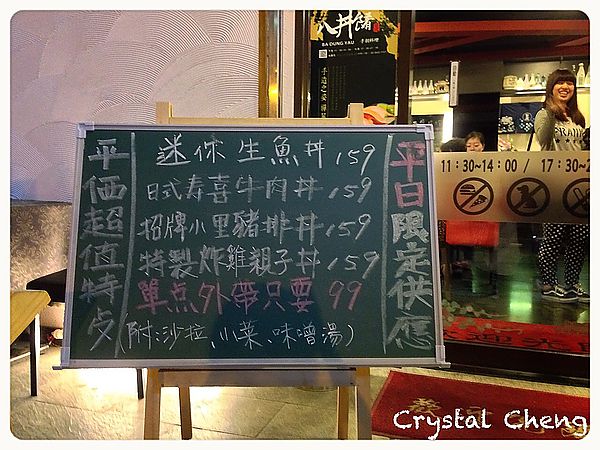 八丼餚
BA DUNG YAU
平価超值特点
迷你生魚丼 159
日式寿喜牛肉丼 159
招牌小里豬排丼 159
特製炸雞親子丼 159
單点外帶只要 99
(附:沙拉、小菜、味噌湯)
平日限定供應
11:30~14:00 / 17:30~2
Crystal Cheng